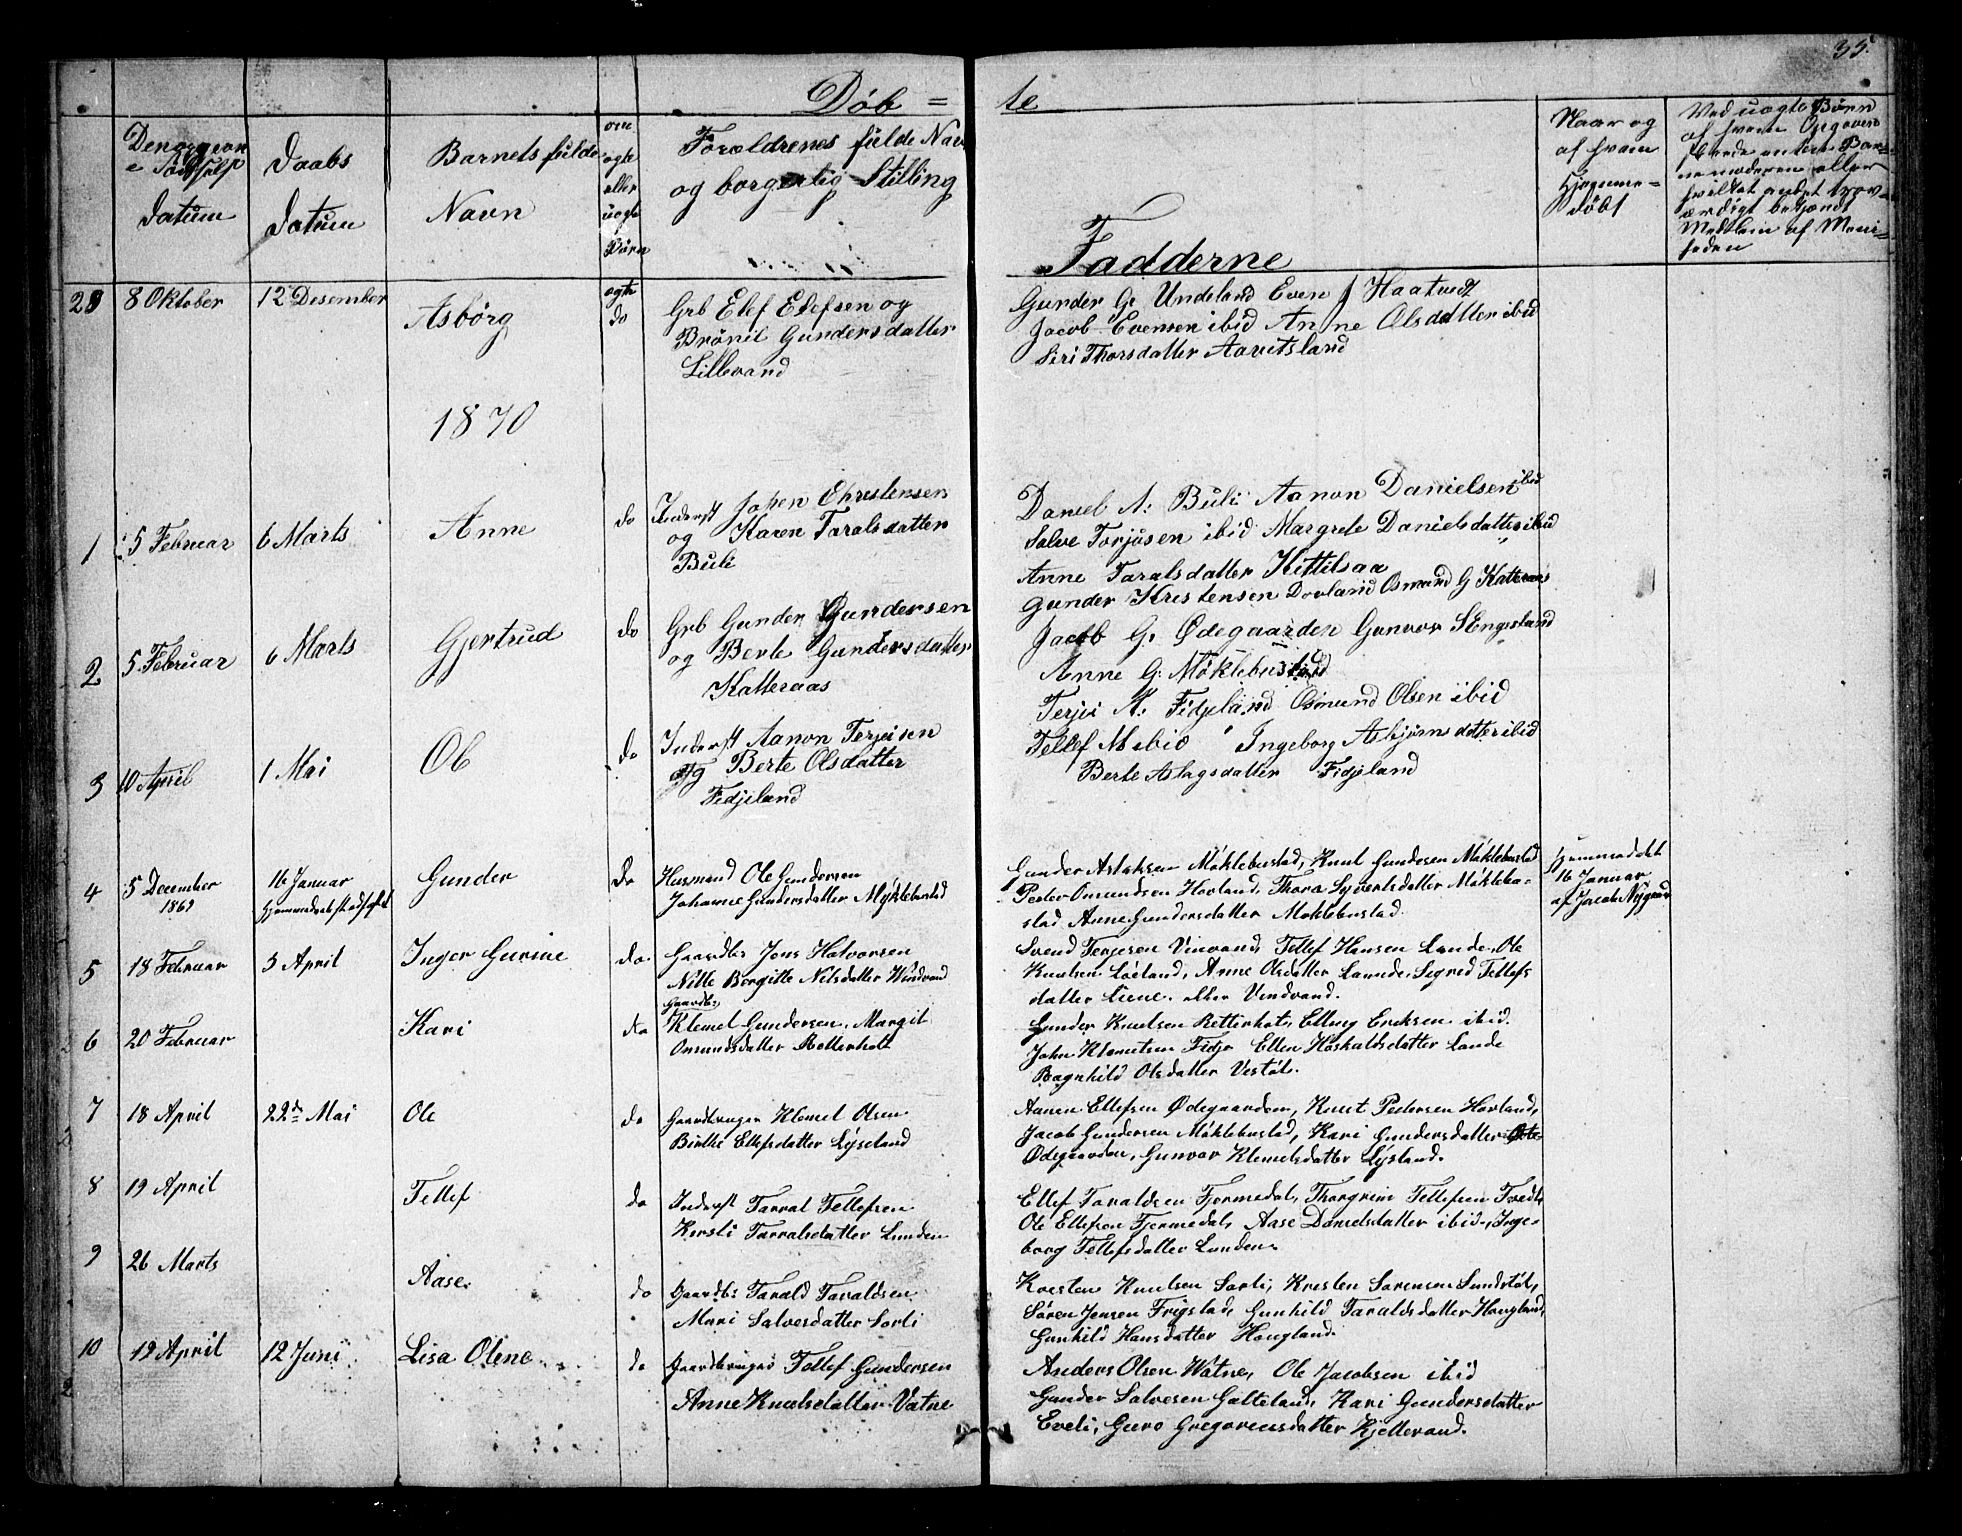 35.
Döb = te
Datum
Daabs
Datum
Barnets fulde
Navn
ægte
eller
uægte
Børn
Forældrenes fulde Navn
og borgerlig Stilling
Fadderne
Naar og
af hvem
hjemme=
döbt
Ved uægte Børn
af hvem Opgavend
hvilket andet trov=
værdigt bekjendt
Medlem af Meni=
heden
28 8 Oktober 12 Desember Asbörg ægte
do
Grb Elef Elefsen og
Brönil Gundersdatter
Lillevand
Gunder G. Undeland Even J Haatvedt
Jacob Evensen ibid Anne Olsdatter ibid
Siri Thorsdatter Aavitsland
1870
1 5 Februar 6 Marts Anne do
Inderst Johen Christensen
og Karen Taralsdatter
Buli
Daniel A: Buli Aanon Danielsen ibid
Salve Torjusen ibid Margrete Danielsdatter ibid
Anne Taralsdatter Kittilsaa
2 5 Februar 6 Marts Gjertrud do
Grb Gunder Gundersen
og Berte Gundersdatter
Katteraas
Gunder Kristensen Dovland Osmund G Katteraas
Jacob G. Ødegaarden Gunvor S Engesland
Anne G. Möklebustad
3 10 April 1 Mai Ole do
Inderst Aanon Terjeisen
og Berte Olsdatter
Fidjeland
Terjei A: Fidjeland Osmund Olsen ibid
Tellef M ibid Ingeborg Asbjörnsdatter ibid
Berte Aslagsdatter Fidjeland
4 5 December
1869
16 Januar
Gunder do
Husmand Ole Gundersen
Johanne Gundersdatter Myklebustad
Gunder Aslaksen Möklebustad, Knut Gundesen Möklebustad
Peder Omundsen Hovland, Thora Syvertsdatter Mökleba-
stad Anne Gundersdatter Moklebustad.
hjemmedöbt
16 Januar
af Jacob Nygaard
5 18 Februar 3 April Inger Gurine do.
Gaardbr. Jens Halvorsen
Nille Bergitte Nilsdatter Windvand
Svend Terjesen Vinvand, Tellef Hansen Lande, Ole
Knutsen Loeland, Anne Olsdatter Lannde, Sigred Tellefs
datter Liene. eller Vindvand.
6 20 Februar Kari do
Gaardbr.
Klemet Gundersen, Margit
Omundsdatter Retterholt
Gunder Knutsen Retterholt, Elling Eriksen ibid.
John Klemetsen Fidje Ellen Hoskoldsdatter Lande
Ragnhild Olsdatter Vestöl.
7 18 April 22de Mai Ole do
Gaardbruger Klemet Olsen
Birthe Ellefsdatter Lyseland
Aanen Ellefsen Ødegaarden, Knut Pedersen Hovland,
Jacob Gundersen Möklebustad, Kari Gundersdatter
Ødegaarden, Gunvor Klemetsdatter Lysland.
8 19 April Tellef do
Inderst Tarral Tellefsen
Kirsti Tarralsdatter Lunden
Ellef Taraldsen Fjermedal, Thorgrim Tellefsen Tvedt,
Ole Ellefsen Fjermedal, Aase Danielsdatter ibid., Inge-
borg Tellefsdatter Lunden.
9 26 Marts Aase. do
Gaardbr Tarald Taraldsen
Mari Salvesdatter Sorli
Kresten Knutsen Sorli, Kresten Sörensen Sundstöl,
Sören Jensen Frigstad, Gunhild Taraldsdatter Haugland,
Gunhild Hansdatter Haugland.
10 12 April 12 Juni Lisa Olene do
Gaardbruger Tellef Gundersen
Anne Knutsdatter Vatne
Anders Olsen Watne, Ole Jacobsen ibid
Gunder Salvesen Galteland, Kari Gundersdatter
Eveli, Guro Gregoriusdatter Kjetterand.